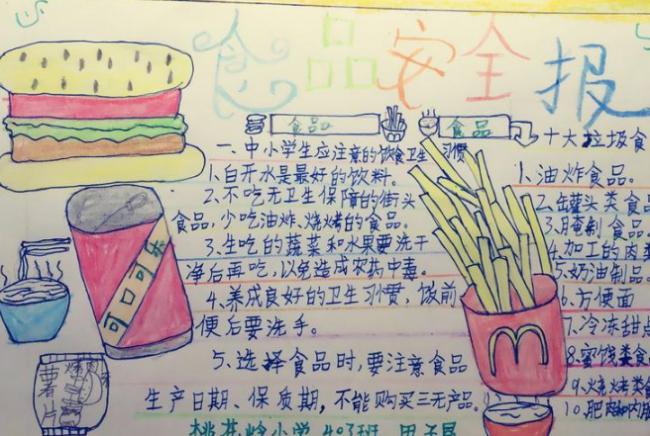 食品安全报
食品
食品
一、中小学生应注意的饮食卫生习惯
1.白开水是最好的饮料。
2、不吃无卫生保障的街头
食品，少吃油炸、烧烤的食品。
3、生吃的蔬菜和水果要洗干
净后再吃，以免造成农药中毒。
4、养成良好的卫生习惯，饭前
便后要洗手。
5、选择食品时，要注意食品
生产日期、保质期，不能购买三无产品。
十大垃圾食
1.油炸食品。
2、罐头类食品
3、腌制食品
4.加工的肉类
5.奶油制品。
6、方便面
7、冷冻甜点
8.蜜饯类食
9、烧烤类
10、肥肉和内脏
可口可乐
薯片
桃花岭小学 403班